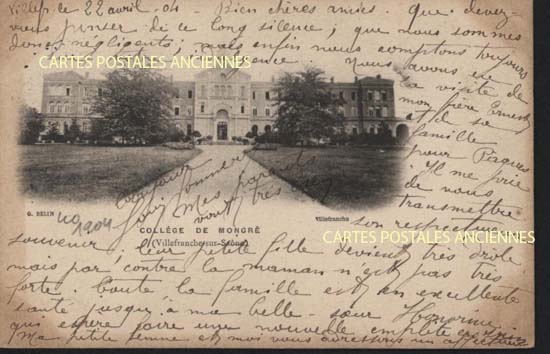 Villef. ce 22 avril . 04 - Bien chères amies . Que devez-
vous penser de ce long silence ; que nous sommes
donc négligents ; mais enfin nous comptons toujours
CARTES POSTALES ANCIENNES
Nous avons eu
la visite de
mon frère Ernest
et de sa
famille
pour Pâques
Il me prie
de nous
transmettre
son respectueux
Mes parents
vont très
G. BELIN
1904
COLLÈGE DE MONGRÉ
(Villefranche-sur-Saône)
Villefranche
CARTES POSTALES ANCIENNES
souvenir, leur petite fille devient très drôle
mais par contre la maman n'est pas très
forte. Toute la famille est en excellente
santé jusqu'à ma belle-sœur Honorine
qui espère faire une nouvelle emplette en
Ma petite femme et moi vous adressons un affectueux